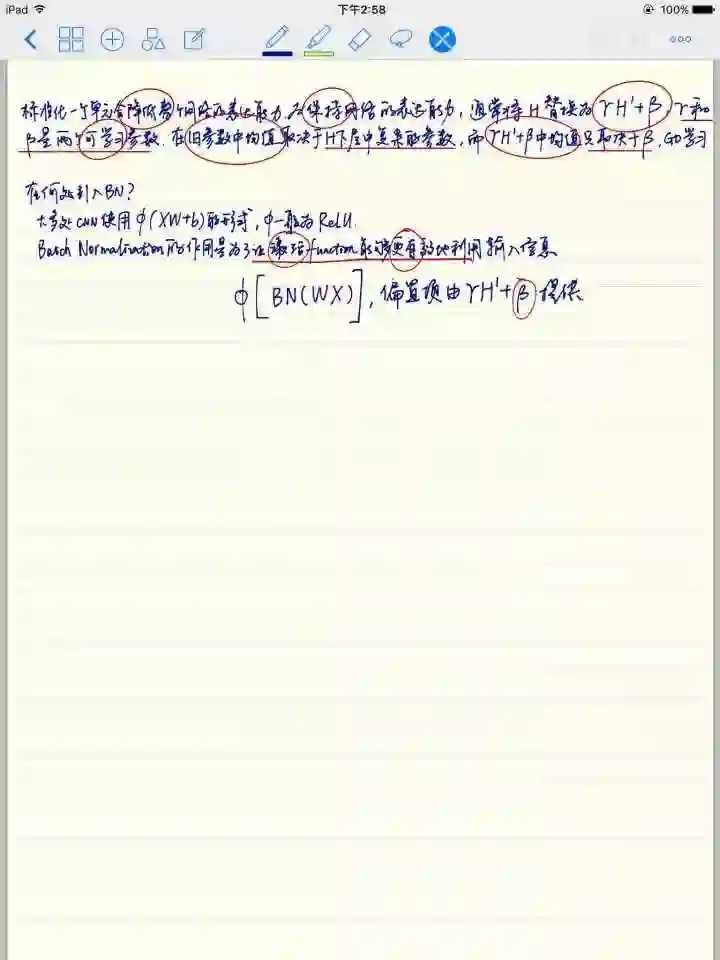 iPad 下午2:58 100%
标准化一个单元会降低整个网络的表达能力,为保持网络的表达能力,通常将H替换为γH'+β,γ和
β是两个可学习参数.在旧参数中均值取决于H下层中复杂的参数,而γH'+β中均值只取决于β,GD学习
在何处引入BN?
大多处CNN使用φ(XW+b)的形式,φ一般为ReLU.
Batch Normalization的作用是为了让激活function能够更有效地利用输入信息
φ[BN(WX)],偏置项由γH'+β提供